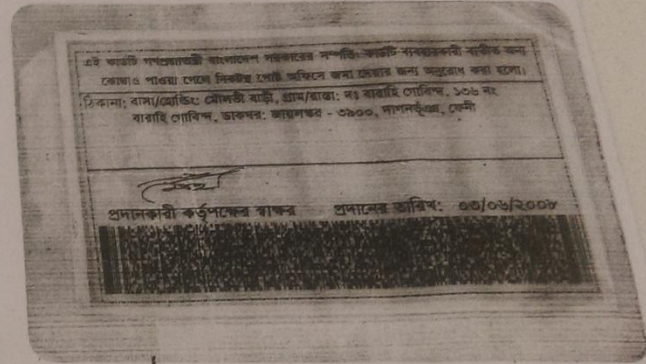 এই কার্ডটি গণপ্রজাতন্ত্রী বাংলাদেশ সরকারের সম্পত্তি। কার্ডটি ব্যবহারকারী ব্যতীত অন্য
কোথাও পাওয়া গেলে নিকটস্থ পোস্ট অফিসে জমা দেয়ার জন্য অনুরোধ করা হলো।
ঠিকানা: বাসা/হোল্ডিং: মৌলভী বাড়ী, গ্রাম/রাস্তা: দঃ বারাহি গোবিন্দ, ১৩৬ নং
বারাহি গোবিন্দ, ডাকঘর: - ৩৯০০, দাগনভূঞা, ফেনী
প্রদানকারী কর্তৃপক্ষের স্বাক্ষর প্রদানের তারিখ: ০৩/০৬/২০০৮